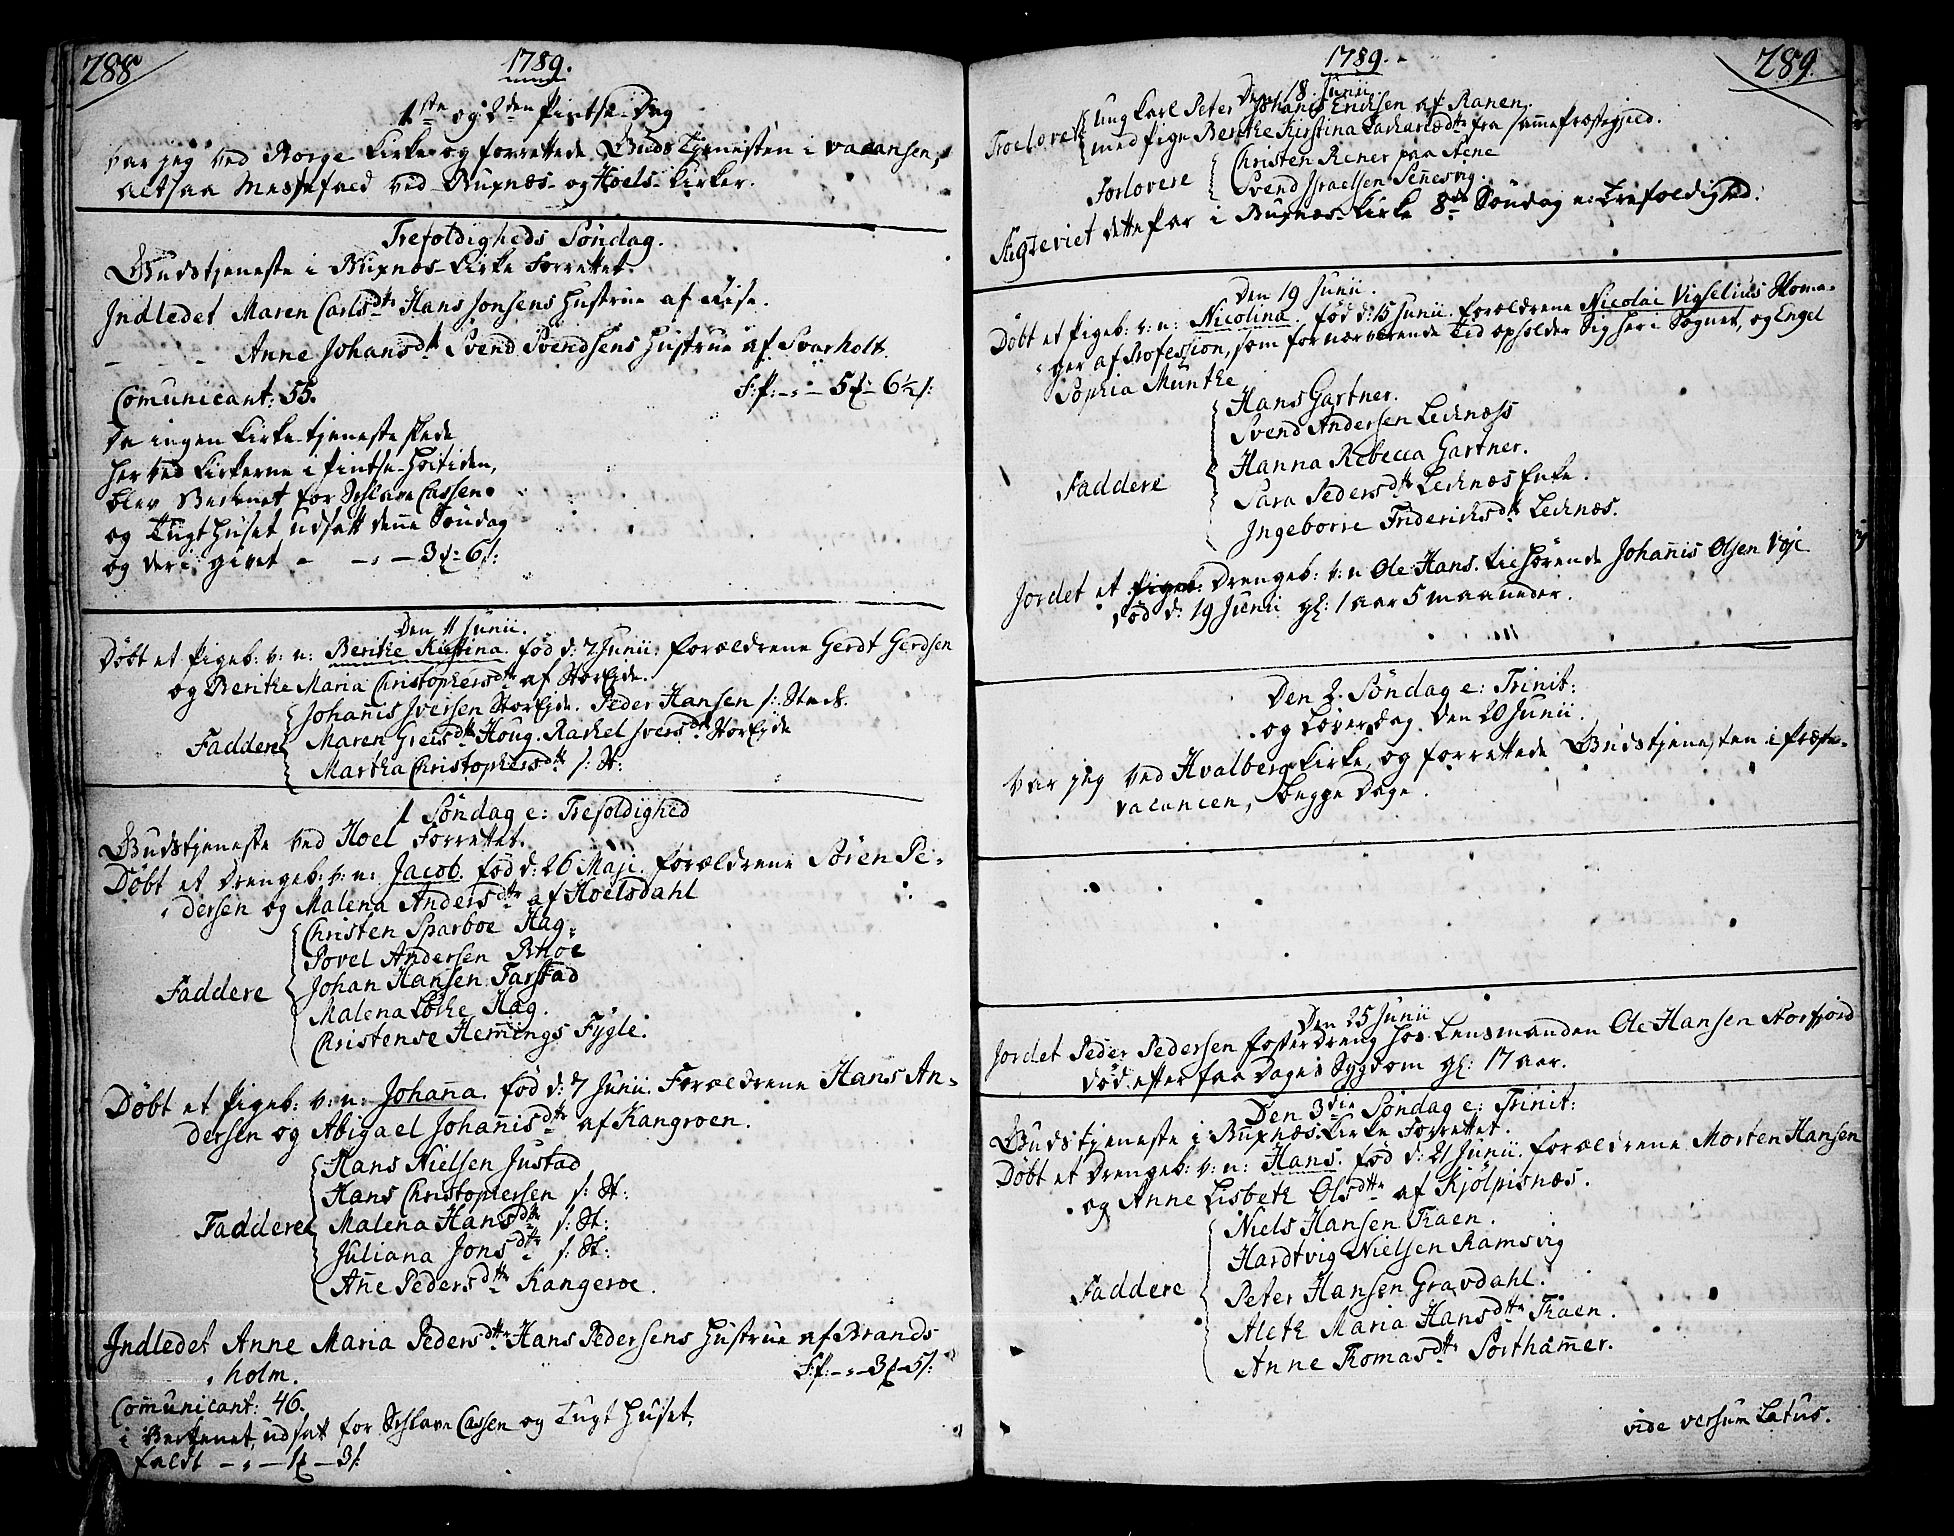 288
1789.
1ste og 2den Pintse-Dag
var jeg ved Borge Kirke og forrettede Guds Tjenesten i vacansen,
altsaa Messefald ved Buxnæs- og Hoels-Kirker.
Trefoldigheds Søndag.
Gudstjeneste i Buxnæs-Kirke Forrettet.
Indledet Maren Carlsdtr Hans Jonsens Hustrue af Lise.
- - Anne Johansdtr Svend Svendsens Hustrue af Svarholt.
Comunicant: 55. F:P: - : - 5 - 6½ s:
Da ingen Kirke-tjeneste skede
her ved Kirkerne i Pintse-Høitiden,
blev Bekenet for Sclave Cassen
og Tugthuset udsatt denne Søndag
og deri givet - - : - 3 - 6 s:
Den 11 Junii.
Døbt et Pigeb: v: n: Berithe Kistina. fød d: 7 Junii. Forældrene Gerdt Gerdsen
og Berithe Maria Christophersdtr af StorEjde.
Faddere
Johannis Iversen StorEjde. Peder Hansen s: Steds.
Maren Greisdtr Houg. Rachel Iversdtr StorEjde
Martha Christophersdtr s: St:
1 Søndag e: Trefoldighed
Gudstjeneste ved Hoel Forrettet.
Døbt et Drengeb: v: n: Jacob. fød d: 26 Maji. Forældrene Sören Pe-
dersen og Malena Andersdtr af Hoelsdahl
Faddere
Christen Sparboe Hag.
Povel Andersen Bhoe
Johan Hansen Farstad
Malena Lothe Hag.
Christense Hemings Fygle.
Døbt et Pigeb: v: n: Johanna. fød d: 7 Junii. Forældrene Hans An-
dersen og Abigael Johannisdtr af Kangroen.
Faddere
Hans Nielsen Justad
Hans Christophersen s: St:
Malena Hansdtr s: St:
Juliana Jonsdtr s: St:
Ane Pedersdtr Kangeroe.
Indledet Anne Maria Pedersdtr Hans Pedersens Hustrue af Brands
holm. F:P: - : - 3 - 5 s:
Comunicant: 46.
i Bekenet, udsatt for Sclave Cassen og Tugt Huset,
faldt - : - 1 - 3 s:
1789.
289.
Den 18 Junii.
Troelovet
Ung Karl Peter Johanis Erichsen af Ranen,
med Pige Berithe Kirstina Zachariædtr fra samme Præstegield.
Forlovere
Christen Rener paa Stene
Svend Israelsen Sennesvig.
Ægteviet dette Par i Buxnæs-Kirke 8de Søndag e: Trefoldighed.
Den 19 Junii.
Døbt et Pigeb: v: n: Nicolina. fød d: 15 Junii. Forældrene Nicolai Vigselius Homa-
ger af Profession, som for nærværende Tid opholder Sig her i Sognet, og Engel
Sophia Munthe
Faddere
Hans Gartner.
Svend Andersen Lechnæss
Hanna Rebecca Gartner.
Sara Pedersdtr Lechnæs Enke.
Ingeborre Friderichsdtr Lechnæs.
Jordet et Drengeb: v: n Ole Hans. tilhørende Johannis Olsen Voje
død d: 19 Junii gl: 1 aar 5 maaneder.
Den 2. Søndag e: Trinit:
og Løverdag Den 20 Junii.
Var jeg ved Hvalberg Kirke, og forrettede Gudstjenesten i Præste-
vacancen, begge Dage.
Den 25 Junii
Jordet Peder Pedersen foster Dreng hos Lensmanden Ole Hansen Storfjord
død efter faa Dages Sygdom gl: 17 aar.
Den 3die Søndag e: Trinit:
Gudstjeneste i Buxnæs-Kirke Forrettet.
Døbt et Drengeb: v: n: Hans. fød d: 21 Junii. Forældrene Morten Hansen
og Anne Lisbeth Olsdtr af Kjölpisnæs.
Faddere
Niels Hansen Traen.
Hardtvig Nielsen Ramsvig
Peter Hansen Gravdahl.
Aleth Maria Hansdtr Traen.
Anne Thomasdtr Porthammer.
vide versum Latus.